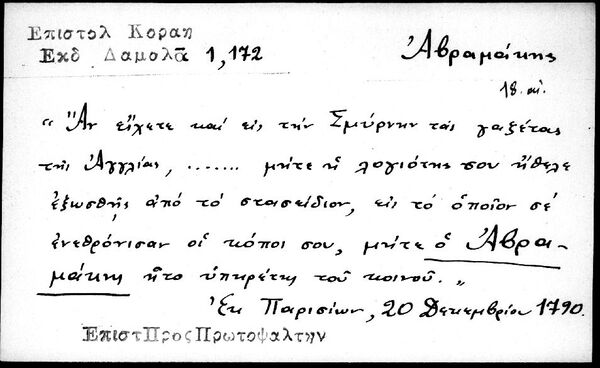 Επιστολ Κοραη
Εκδ Δαμαλᾶ 1,172
Ἀβραμάκης
18. αἰ.
" Ἂν εἴχετε καὶ εἰς τὴν Σμύρνην τὰς γαζέτας
τῆς Ἀγγλίας, ....... μήτε ἡ λογιότης σου ἤθελε
ἐξωσθῆς ἀπὸ τὸ στασείδιον, εἰς τὸ ὁποῖον σὲ
ἐνεθρόνισαν οἱ κόποι σου, μήτε ὁ Ἀβρα-
μάκης ἦτο ὑπηρέτης τοῦ κοινοῦ. "
Ἐκ Παρισίων, 20 Δεκεμβρίου 1790.
ΕπιστΠροςΠρωτοψαλτην